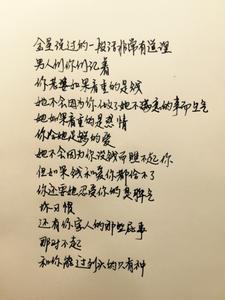 金星说过的一段话非常有道理
男人们你们记着
你老婆如果看重的是钱
她不会因为你做了她不痛爱的事而生气
她如果看重的是感情
你给她足够的爱
她不会因为你没钱而瞧不起你
但如果钱和爱你都给不了
你还要她忍受你的臭脾气
坏习惯
还有你家人的那些屁事
那对不起
和你能过到头的只有神